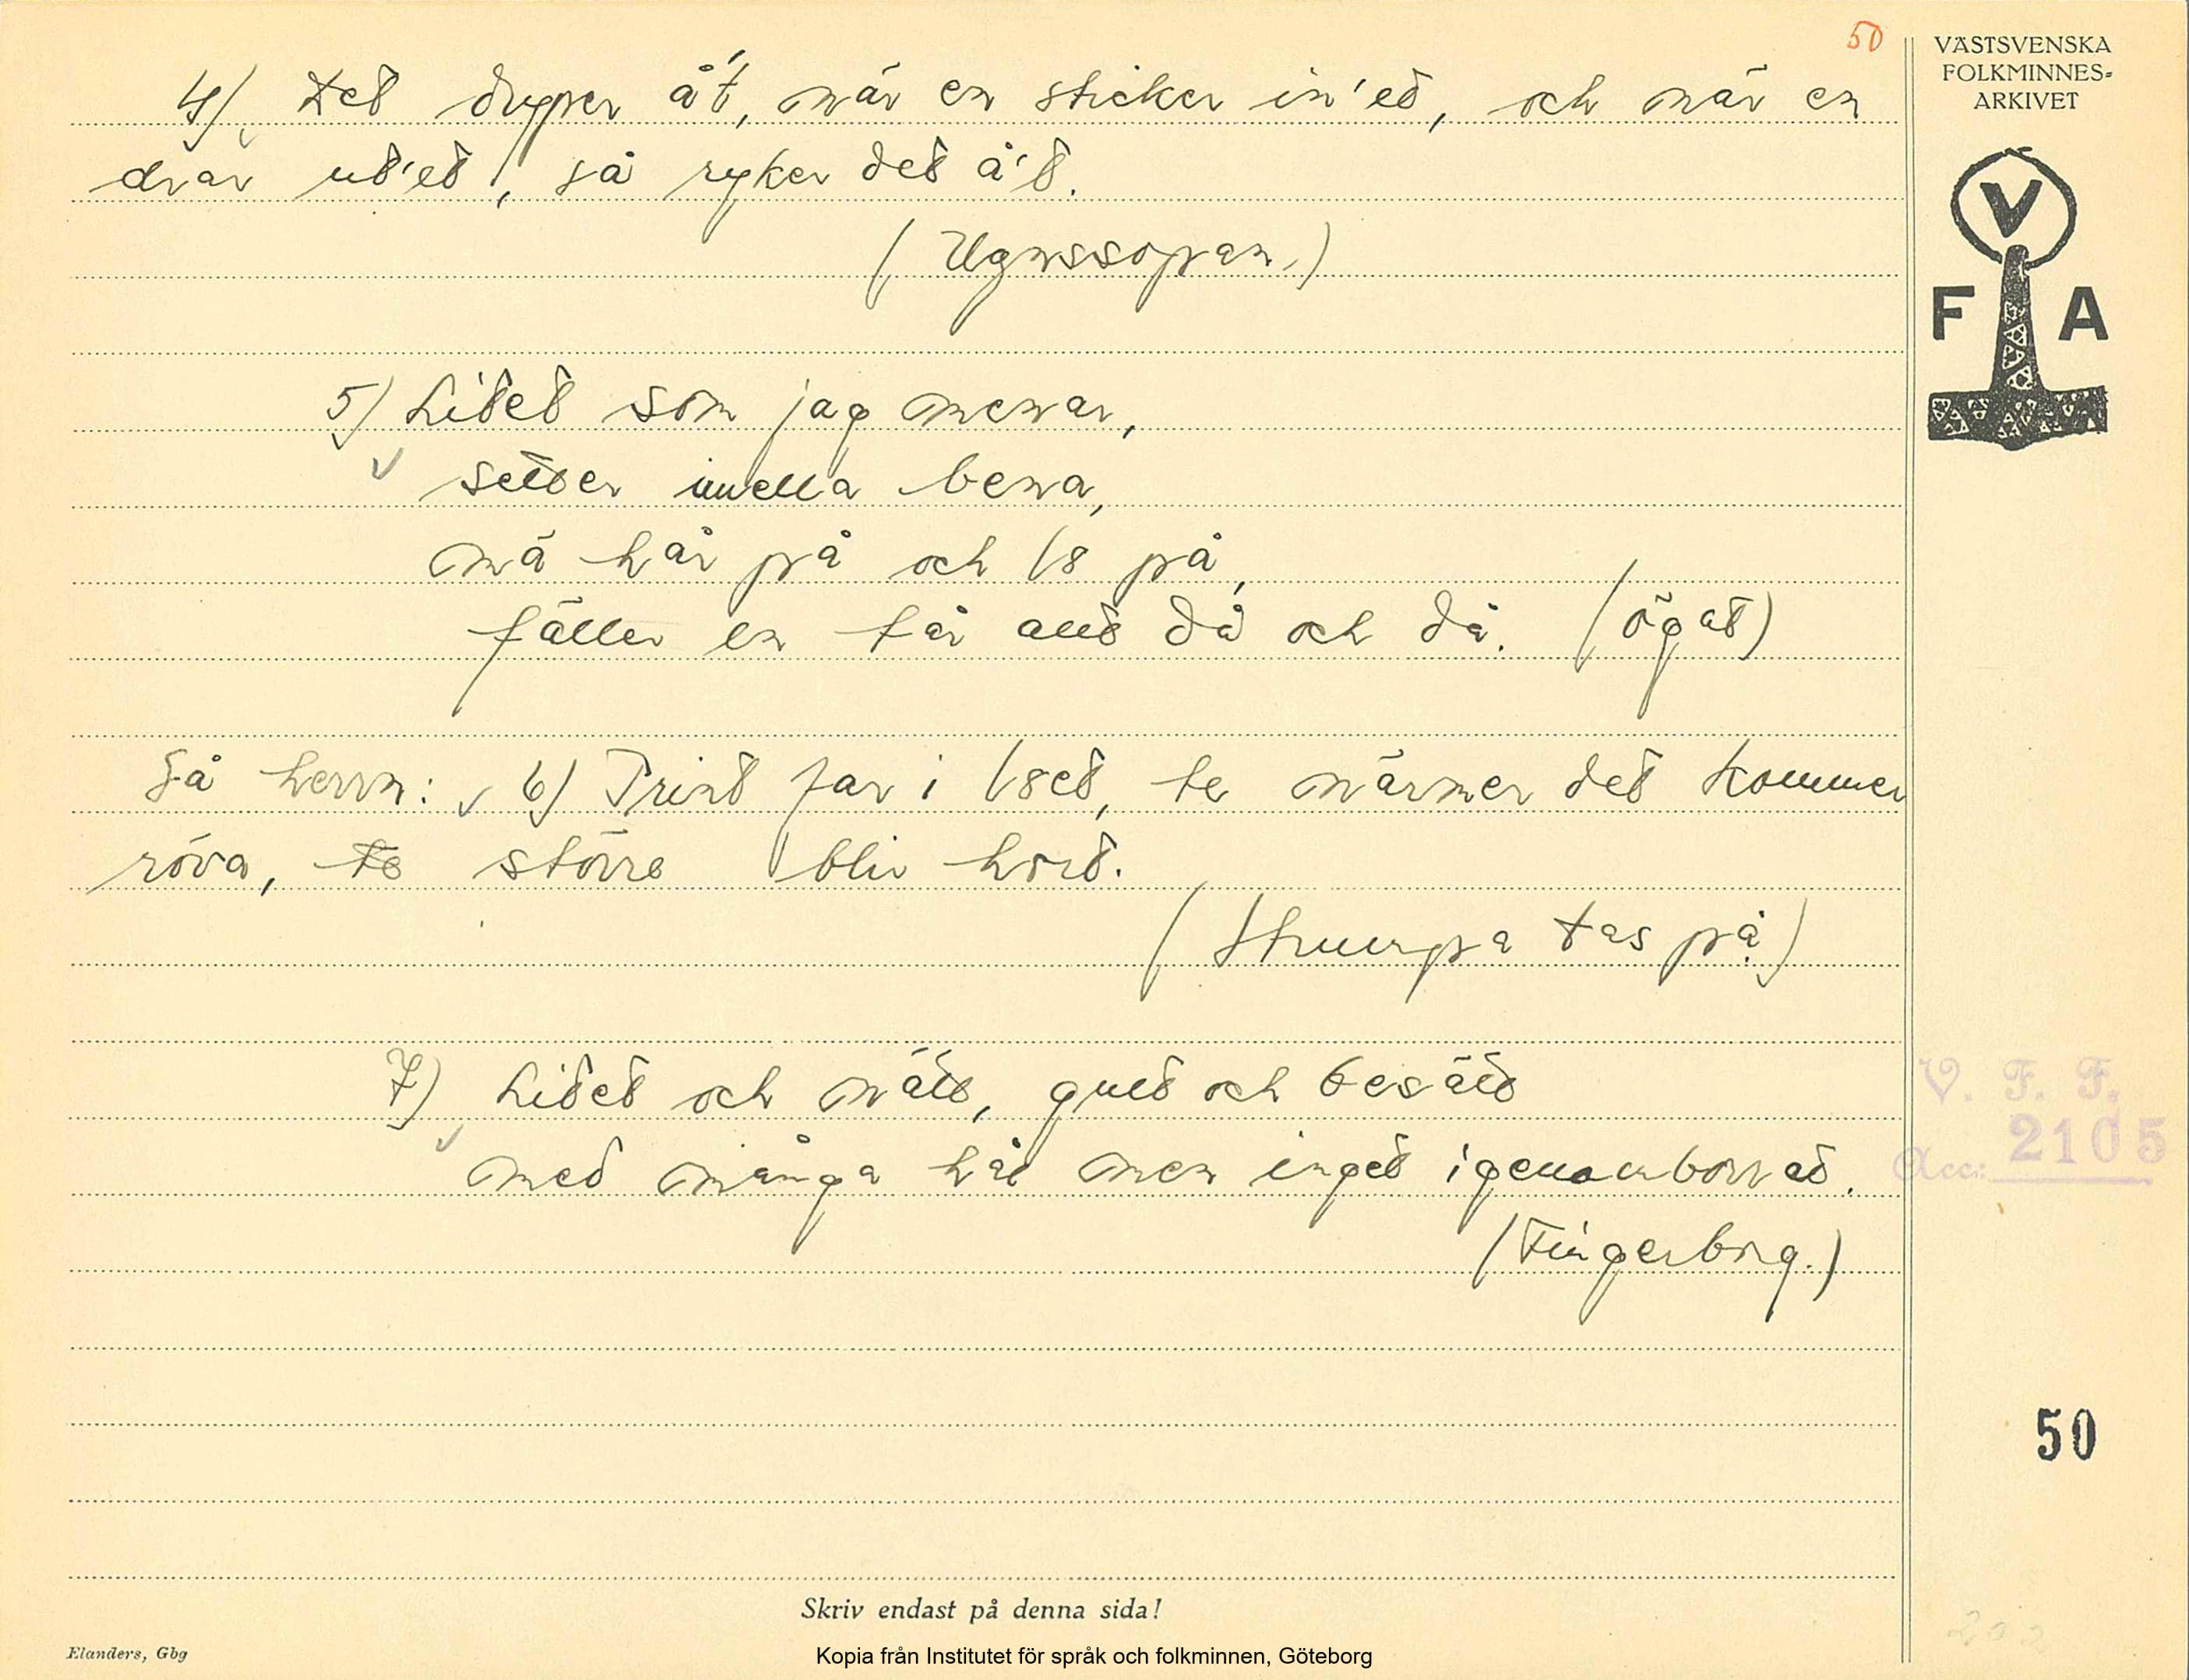 50
VÄSTSVENSKA
FOLKMINNES-
ARKIVET
V
F A
4) Det dryper å't, när en sticker in'ed, och när en
drar ut'et, så ryker det å't.
(Ugnssopan.)
5) Litet som jag menar,
sitter imella bena,
mä hår på och lö på,
fäller en tår allt då och då. (ögat)
Så herrn: 6) Trint far i löet, te närmer det kommer
röva, te större bliv hört.
(Strumpa tas på)
7) Litet och nätt, gult och besätt
med många hål men inget igenomborrat.
(Fingerborg.)
V. F. F.
Acc: 2105
50
Skriv endast på denna sida!
Elanders, Gbg
Kopia från Institutet för språk och folkminnen, Göteborg